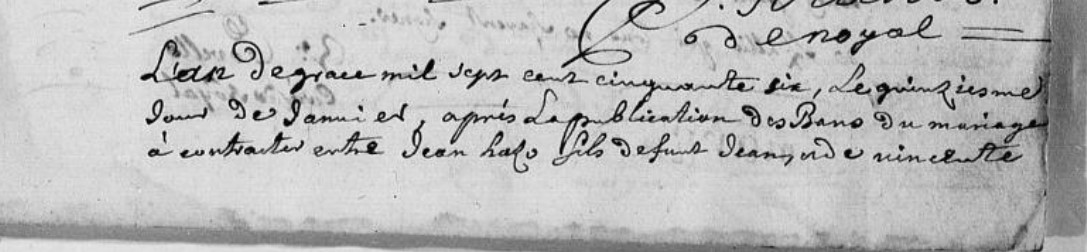 de noyal
L'an de grace mil sept cent cinquante six, Le quinziesme
Jour de Janvier, après La publication des Bans du mariage
à contracter entre Jean fils defunt Jean, et de vincente